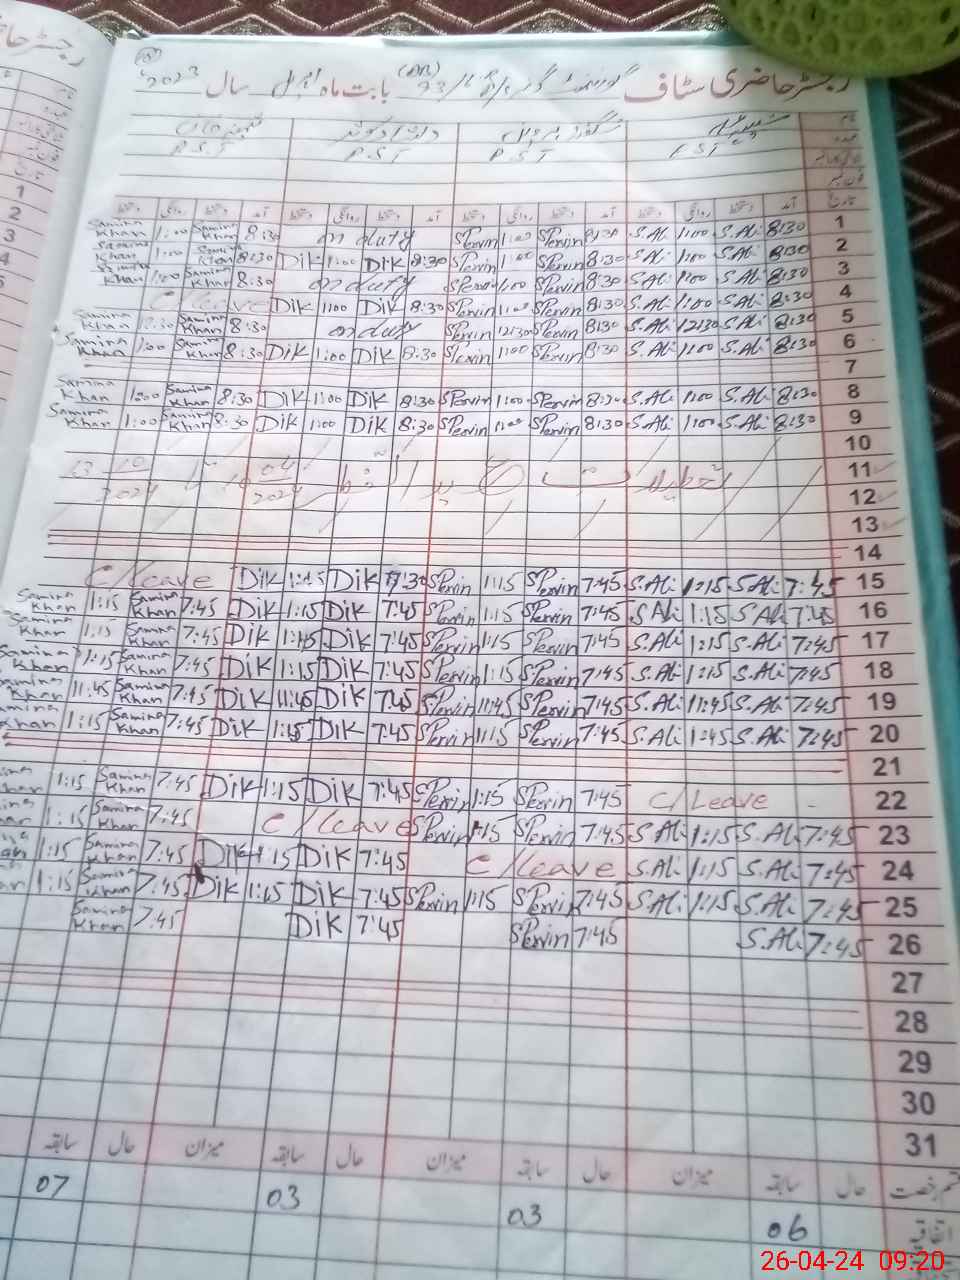 رجسٹر حاضری سٹاف گورنمنٹ بابت ماہ اپریل سال 2023
P.S.T P.S.T P.S.T
نام
عہدہ
تاریخ
آمد دستخط روانگی دستخط آمد دستخط روانگی دستخط آمد دستخط روانگی دستخط آمد دستخط روانگی دستخط
1 8:30 S.Ali 1:00 S.Ali 8:30 SPervin 1:00 SPervin on duty 8:30 Samina Khan 1:00 Samina Khan
2 8:30 S.Ali 1:00 S.Ali 8:30 SPervin 1:00 SPervin 8:30 Dik 1:00 Dik 8:30 Samina Khan 1:00 Samina Khan
3 8:30 S.Ali 1:00 S.Ali 8:30 SPervin 1:00 SPervin on duty 8:30 Samina Khan 1:00 Samina Khan
4 8:30 S.Ali 1:00 S.Ali 8:30 SPervin 1:00 SPervin 8:30 Dik 1:00 Dik C/leave
5 8:30 S.Ali 12:30 S.Ali 8:30 SPervin 12:30 SPervin on duty 8:30 Samina Khan 12:30 Samina Khan
6 8:30 S.Ali 1:00 S.Ali 8:30 SPervin 1:00 SPervin 8:30 Dik 1:00 Dik 8:30 Samina Khan 1:00 Samina Khan
7
8 8:30 S.Ali 1:00 S.Ali 8:30 SPervin 1:00 SPervin 8:30 Dik 1:00 Dik 8:30 Samina Khan 1:00 Samina Khan
9 8:30 S.Ali 1:00 S.Ali 8:30 SPervin 1:00 SPervin 8:30 Dik 1:00 Dik 8:30 Samina Khan 1:00 Samina Khan
10
11 تعطیلات عید الفطر
12
13
14
15 7:45 S.Ali 1:15 S.Ali 7:45 SPervin 1:15 SPervin 7:30 Dik 1:15 Dik C/leave
16 7:45 S.Ali 1:15 S.Ali 7:45 SPervin 1:15 SPervin 7:45 Dik 1:15 Dik 7:45 Samina Khan 1:15 Samina Khan
17 7:45 S.Ali 1:15 S.Ali 7:45 SPervin 1:15 SPervin 7:45 Dik 1:15 Dik 7:45 Samina Khan 1:15 Samina Khan
18 7:45 S.Ali 1:15 S.Ali 7:45 SPervin 1:15 SPervin 7:45 Dik 1:15 Dik 7:45 Samina Khan 1:15 Samina Khan
19 7:45 S.Ali 11:45 S.Ali 7:45 SPervin 11:45 SPervin 7:45 Dik 11:45 Dik 7:45 Samina Khan 11:45 Samina Khan
20 7:45 S.Ali 1:45 S.Ali 7:45 SPervin 1:15 SPervin 7:45 Dik 1:15 Dik 7:45 Samina Khan 1:15 Khan
21
22 C/Leave 7:45 SPervin 1:15 SPervin 7:45 Dik 1:15 Dik 7:45 Samina Khan 1:15
23 7:45 S.Ali 1:15 S.Ali 7:45 SPervin 1:15 SPervin C/leave 7:45 Samina Khan 1:15
24 7:45 S.Ali 1:15 S.Ali C/leave 7:45 Dik 1:15 Dik 7:45 Samina Khan 1:15
25 7:45 S.Ali 1:15 S.Ali 7:45 SPervin 1:15 SPervin 7:45 Dik 1:45 Dik 7:45 Samina Khan 1:15
26 7:45 S.Ali 7:45 SPervin 7:45 Dik 7:45 Samina Khan
27
28
29
30
31
قسم رخصت حال سابقہ میزان حال سابقہ میزان حال سابقہ میزان حال سابقہ
اتفاقیہ 06 03 03 07
26-04-24 09:20